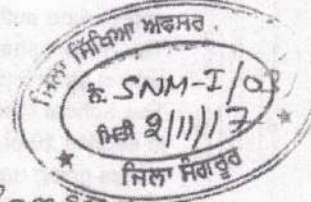 ਜਿਲਾ ਸਿੱਖਿਆ ਅਫਸਰ
ਨੰ. SNM-I/03
ਮਿਤੀ 2/11/17
ਜਿਲਾ ਸੰਗਰੂਰ